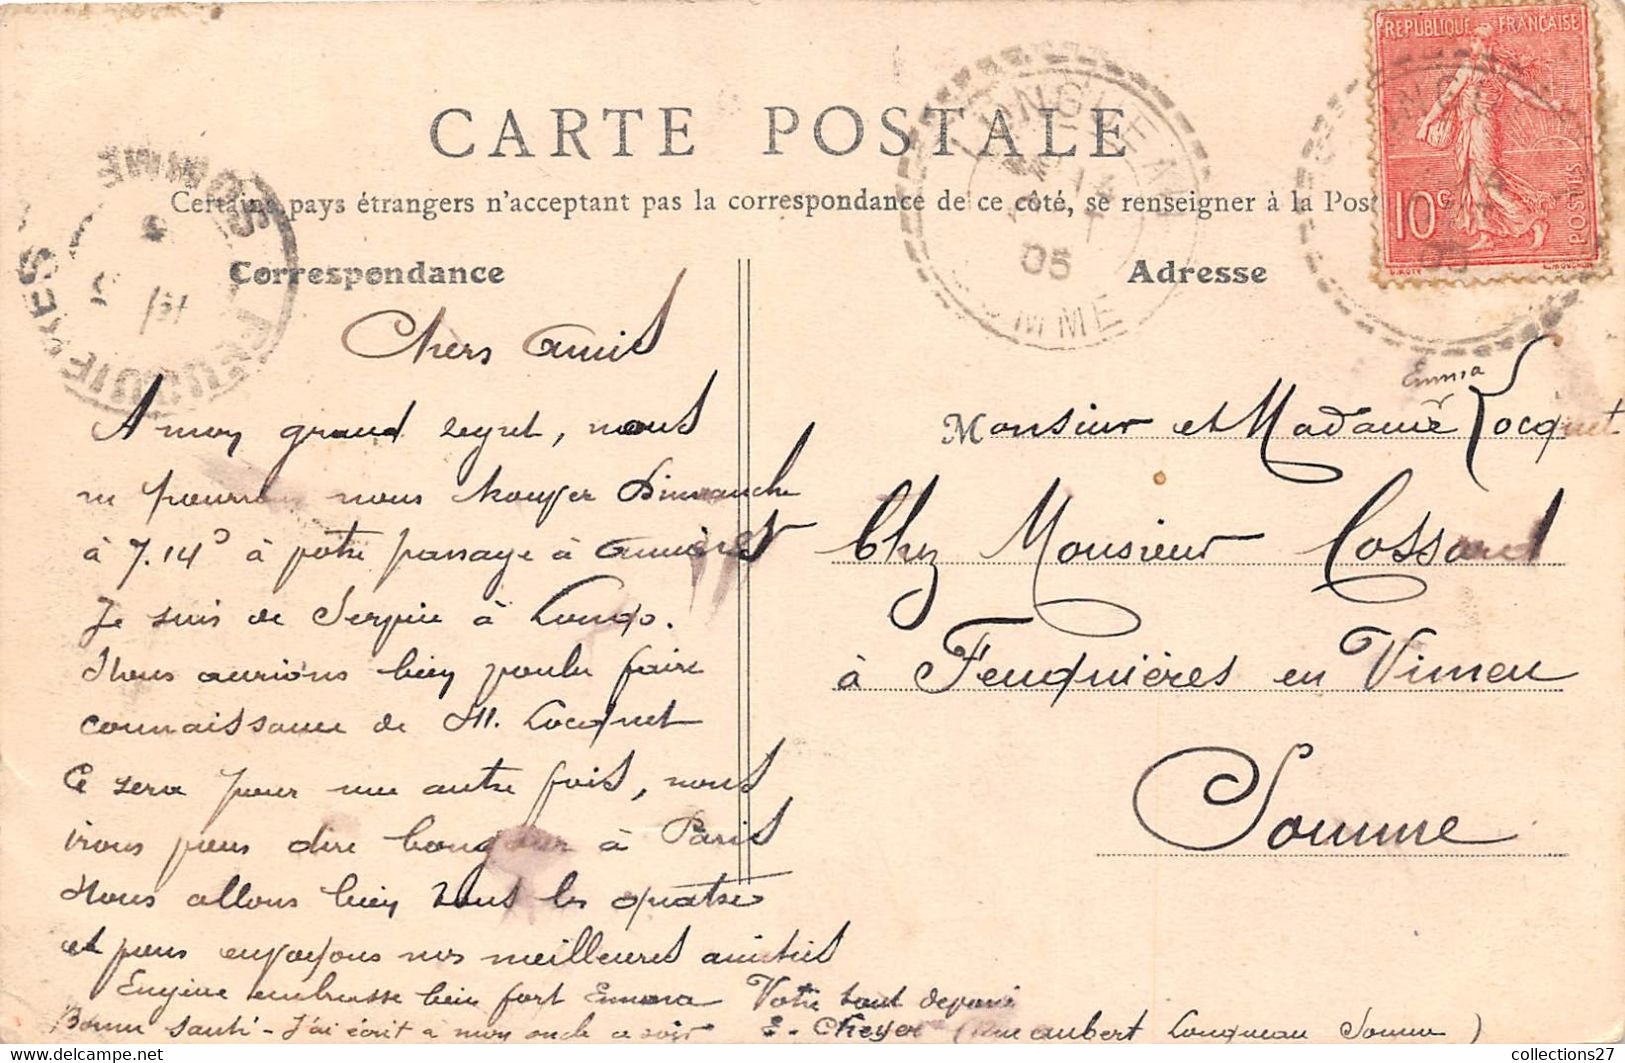 CARTE POSTALE
Certains pays étrangers n'acceptent pas la correspondance de ce côté, se renseigner à la Post
REPUBLIQUE FRANÇAISE
10c POSTES
LONGUEAU
05
SOMME
FEUQUIERES SOMME
Correspondance
Adresse
Chers Amis
A mon grand regret, nous
ne pourrons nous trouver Dimanche
à 7.14 à votre passage à Amiens
Je suis de Service à Longo.
Nous aurions bien voulu faire
connaissance de M. Locquet
Ce sera pour une autre fois, nous
irons vous dire bonjour à Paris
Nous allons bien tous les quatre
et vous envoyons nos meilleures amitiés
Eugène embrasse bien fort Emma Votre tout dévoué
Bonne santé - J'ai écrit à mon oncle ce soir E. (rue aubert Longueau Somme)
Emma
Monsieur et Madame Locquet
Chez Monsieur Cossard
à Feuquières en Vimeu
Somme
collections27